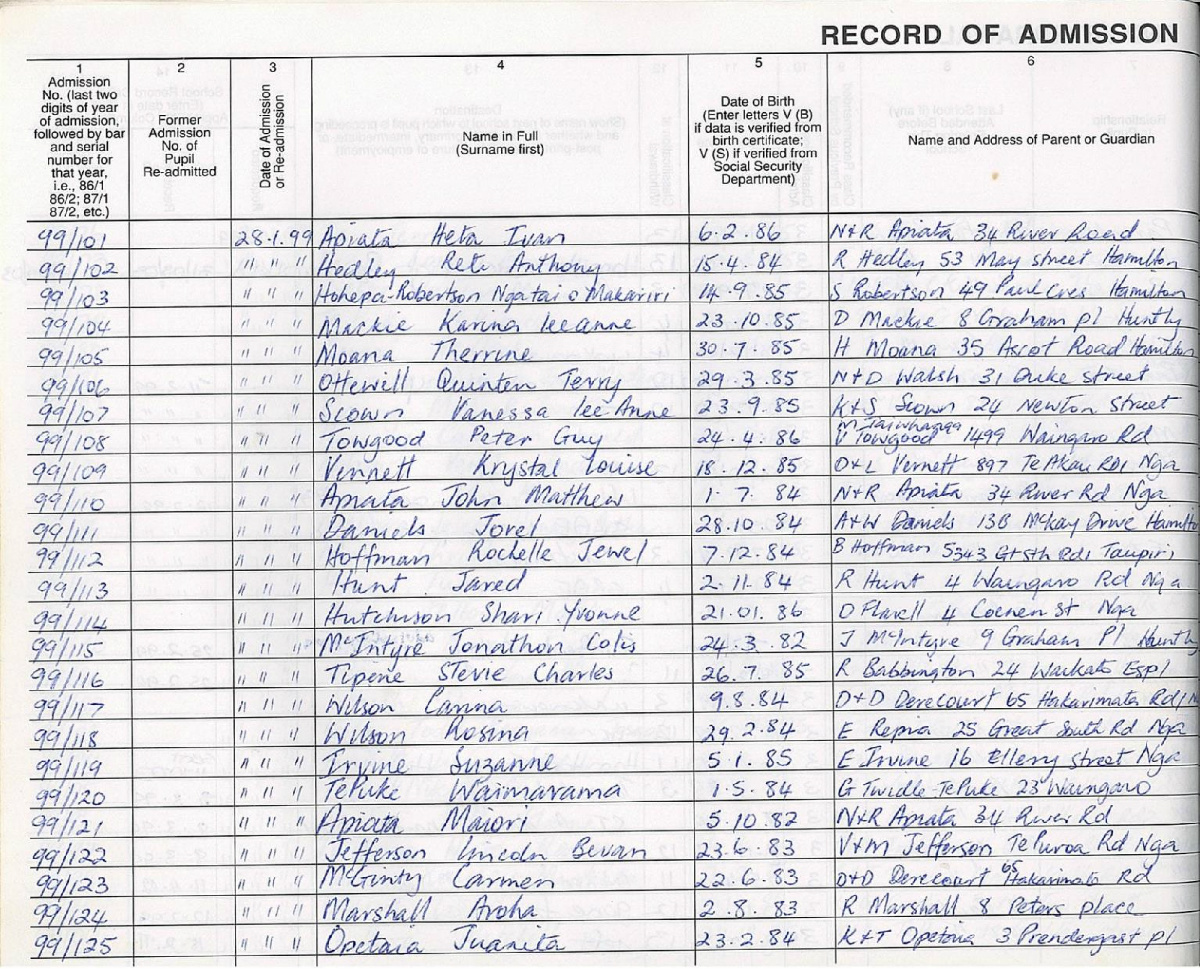 RECORD OF ADMISSION
1 2 3 4 5 6
Admission No. (last two digits of year of admission, followed by bar and serial number for that year, i.e., 86/1 86/2; 87/1 87/2, etc.)
Former Admission No. of Pupil Re-admitted
Date of Admission or Re-admission
Name in Full (Surname first)
Date of Birth (Enter letters V (B) if data is verified from birth certificate; V (S) if verified from Social Security Department)
Name and Address of Parent or Guardian
99/101 28.1.99 Apiata Heta Ivan 6.2.86 N+R Apiata 34 River Road
99/102 " " " Hedley Reti Anthony 15.4.84 R Hedley 53 May street Hamilton
99/103 " " " Hohepa-Robertson Ngatai o Makariri 14.9.85 S Robertson 49 Paul Cres Hamilton
99/104 " " " Mackie Karina leeanne 23.10.85 D Mackie 8 Graham pl Huntly
99/105 " " " Moana Therrine 30.7.85 H Moana 35 Ascot Road Hamilton
99/106 " " " Ottewill Quinten Terry 29.3.85 N+D Walsh 31 Duke street
99/107 " " " Scown Vanessa lee Anne 23.9.85 K+S Scown 24 Newton Street
99/108 " " " Towgood Peter Guy 24.4.86 M Taiwhanga V Towgood 1499 Waingaro Rd
99/109 " " " Vernett Krystal Louise 18.12.85 D+L Vernett 897 Te Akau RD1 Nga
99/110 " " " Apiata John Matthew 1.7.84 N+R Apiata 34 River Rd Nga
99/111 " " " Daniels Jorel 28.10.84 A+W Daniels 13B McKay Drive Hamilto
99/112 " " " Hoffman Rochelle Jewel 7.12.84 B Hoffman 5343 Gt Sth Rd1 Taupiri
99/113 " " " Hunt Jared 2.11.84 R Hunt 4 Waingaro Rd Nga
99/114 " " " Hutchison Shari Yvonne 21.01.86 D Flavell 4 Coenen St Nga
99/115 " " " McIntyre Jonathon Colis 24.3.82 J McIntyre 9 Graham Pl Huntly
99/116 " " " Tipene Stevie Charles 26.7.85 R Babbington 24 Waikato Espl
99/117 " " " Wilson Carina 9.8.84 D+D Derecourt 65 Hakarimata Rd1
99/118 " " " Wilson Rosina 29.2.84 E Repia 25 Great South Rd Nga
99/119 " " " Irvine Suzanne 5.1.85 E Irvine 16 Ellery street Nga
99/120 " " " TePuke Waimarama 1.5.84 G Twidle-TePuke 23 Waingaro
99/121 " " " Apiata Maiori 5.10.82 N+R Apiata 34 River Rd
99/122 " " " Jefferson Lincoln Bevan 23.6.83 V+M Jefferson Te Puroa Rd Nga
99/123 " " " McGinty Carmen 22.6.83 D+D Derecourt 65 Hakarimata Rd
99/124 " " " Marshall Aroha 2.8.83 R Marshall 8 Peters place
99/125 " " " Opetaia Juanita 23.2.84 K+T Opetaia 3 Prendergast pl